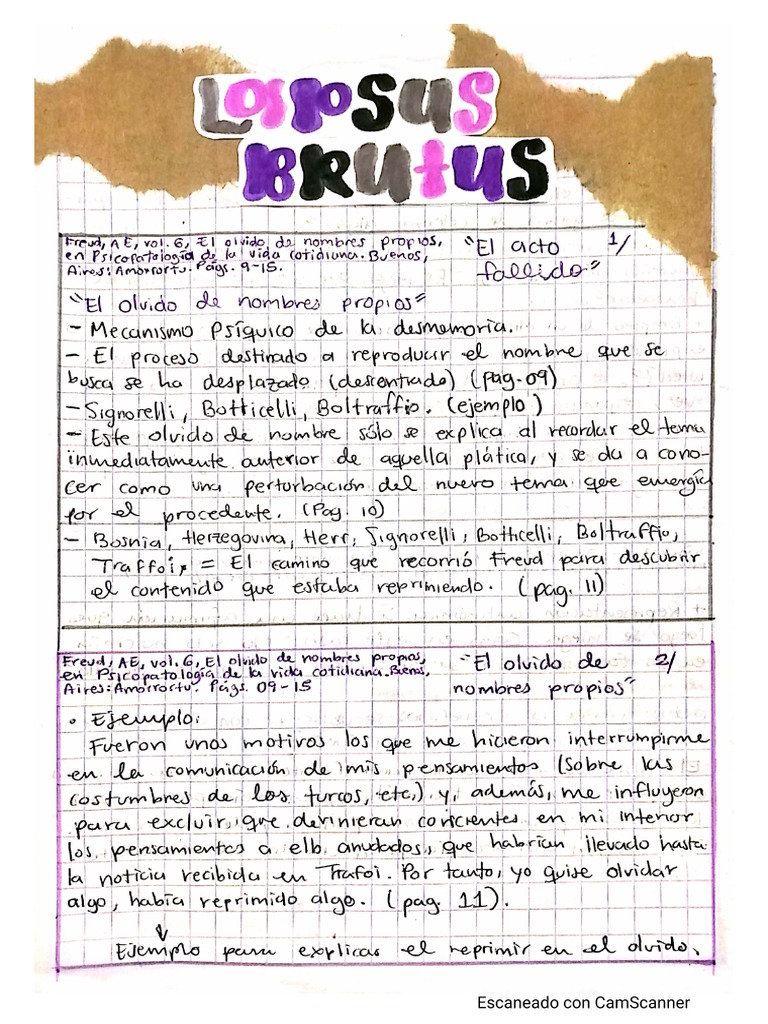 LAPSUS
BRUTUS
Freud, AE, vol. 6, El olvido de nombres propios,
en Psicopatología de la vida cotidiana. Buenos,
Aires: Amorrortu. Págs. 9-15.
"El acto
fallido"
1/
"El olvido de nombres propios"
- Mecanismo Psíquico de la desmemoria.
- El proceso destinado a reproducir el nombre que se
busca se ha desplazado (descentrado) (pag. 09)
- Signorelli, Botticelli, Boltraffio. (ejemplo)
- Este olvido de nombre sólo se explica al recordar el tema
inmediatamente anterior de aquella plática, y se da a cono-
cer como una perturbación del nuevo tema que emergía
por el procedente. (Pag. 10)
- Bosnia, Herzegovina, Herr, Signorelli, Botticelli, Boltraffio,
Traffoi, = El camino que recorrió Freud para descubrir
el contenido que estaba reprimiendo. (pag. 11)
Freud, AE, vol. 6, El olvido de nombres propios,
en Psicopatología de la vida cotidiana. Buenos,
Aires: Amorrortu. Págs. 09-15
"El olvido de
nombres propios"
2/
• Ejemplo:
Fueron unos motivos los que me hicieron interrumpirme
en la comunicación de mis pensamientos (sobre las
costumbres de los turcos, etc.) y, además, me influyeron
para excluir que devinieran concientes en mi interior
los pensamientos a ello anudados, que habrían llevado hasta
la noticia recibida en Trafoi. Por tanto, yo quise olvidar
algo, había reprimido algo. (pag. 11).
Ejemplo para explicar el reprimir en el olvido.
Escaneado con CamScanner